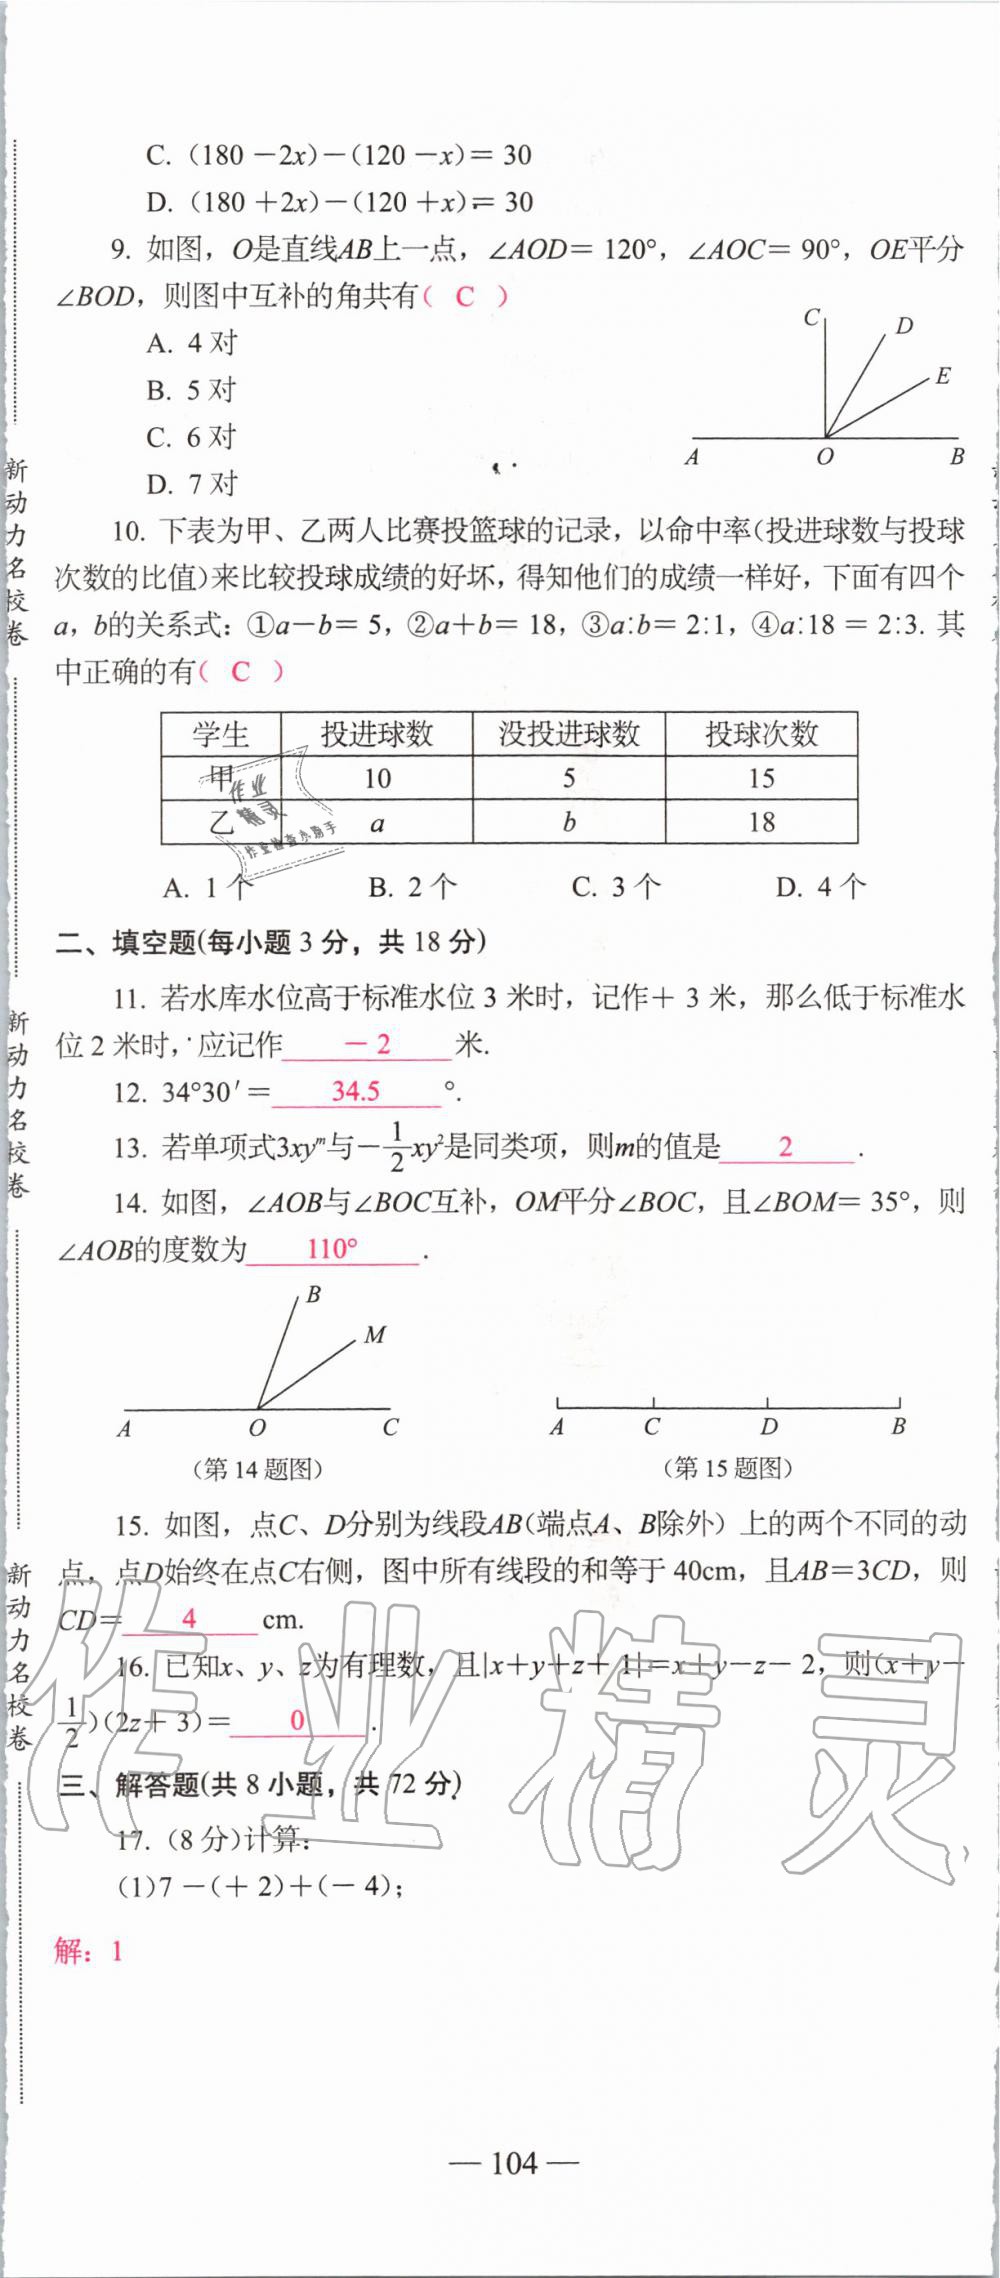 C. (180－2x)－(120－x)＝30
D. (180＋2x)－(120＋x)＝30
9. 如图，O是直线AB上一点，∠AOD＝120°，∠AOC＝90°，OE平分
∠BOD，则图中互补的角共有( C )
A. 4对
B. 5对
C. 6对
D. 7对
C
D
E
A
O
B
10. 下表为甲、乙两人比赛投篮球的记录，以命中率(投进球数与投球
次数的比值)来比较投球成绩的好坏，得知他们的成绩一样好，下面有四个
a，b的关系式：①a－b＝5，②a＋b＝18，③a∶b＝2∶1，④a∶18＝2∶3. 其
中正确的有( C )
学生 投进球数 没投进球数 投球次数
甲 10 5 15
乙 a b 18
作业
精灵
作业检查小助手
A. 1个 B. 2个 C. 3个 D. 4个
二、填空题(每小题3分，共18分)
11. 若水库水位高于标准水位3米时，记作＋3米，那么低于标准水
位2米时，应记作 －2 米.
12. 34°30′＝ 34.5 °.
13. 若单项式3xyᵐ与－1/2xy²是同类项，则m的值是 2 .
14. 如图，∠AOB与∠BOC互补，OM平分∠BOC，且∠BOM＝35°，则
∠AOB的度数为 110° .
B
M
A O C
A C D B
(第14题图) (第15题图)
15. 如图，点C、D分别为线段AB(端点A、B除外)上的两个不同的动
点，点D始终在点C右侧，图中所有线段的和等于40cm，且AB＝3CD，则
CD＝ 4 cm.
16. 已知x、y、z为有理数，且|x＋y＋z＋1|＝x＋y－z－2，则(x＋y－
1/2)(2z＋3)＝ 0 .
三、解答题(共8小题，共72分)
17. (8分)计算：
(1)7－(＋2)＋(－4)；
解：1
作业精灵
— 104 —
新动力名校卷
新动力名校卷
新动力名校卷